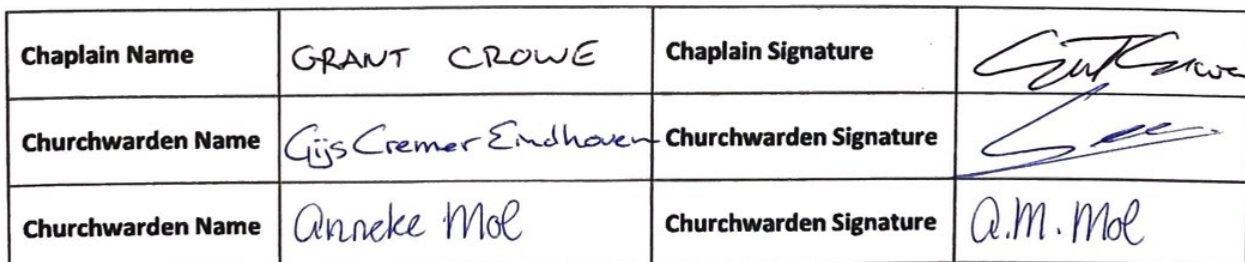 Chaplain Name GRANT CROWE Chaplain Signature
Churchwarden Name Gijs Cremer Eindhoven Churchwarden Signature
Churchwarden Name Anneke Mol Churchwarden Signature A.M. Mol